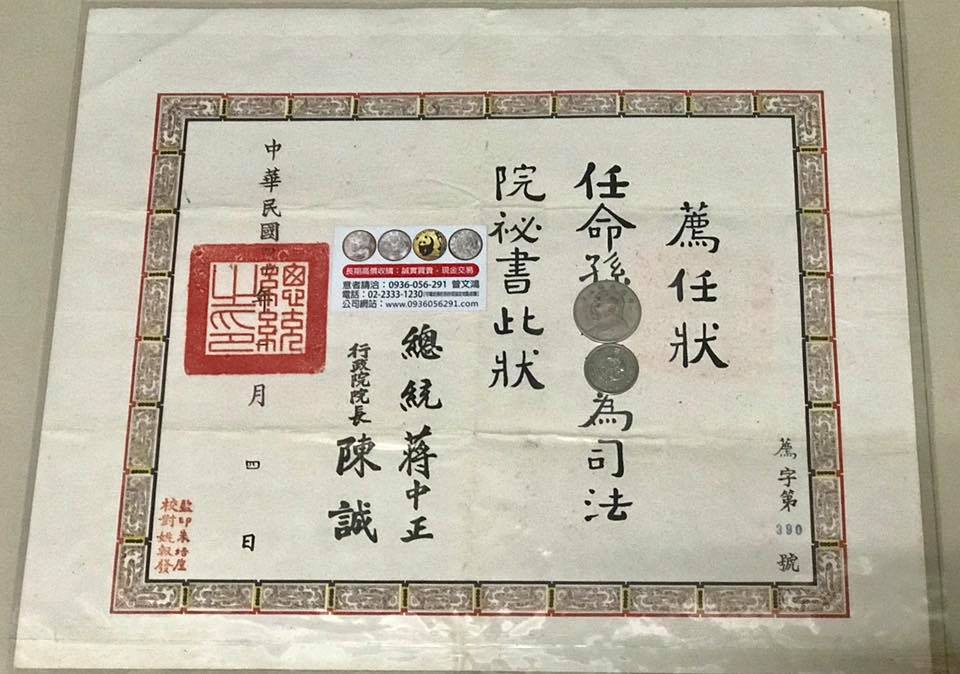 薦任狀
任命孫
為司法
院祕書此狀
總統 蔣中正
行政院院長 陳誠
中華民國
年
月
四
日
總統之印
薦字第390號
校對姚毅發
長期高價收購：誠實買賣・現金交易
意者請洽：0936-056-291 曾文鴻
電話：02-2333-1230
公司網站：www.0936056291.com